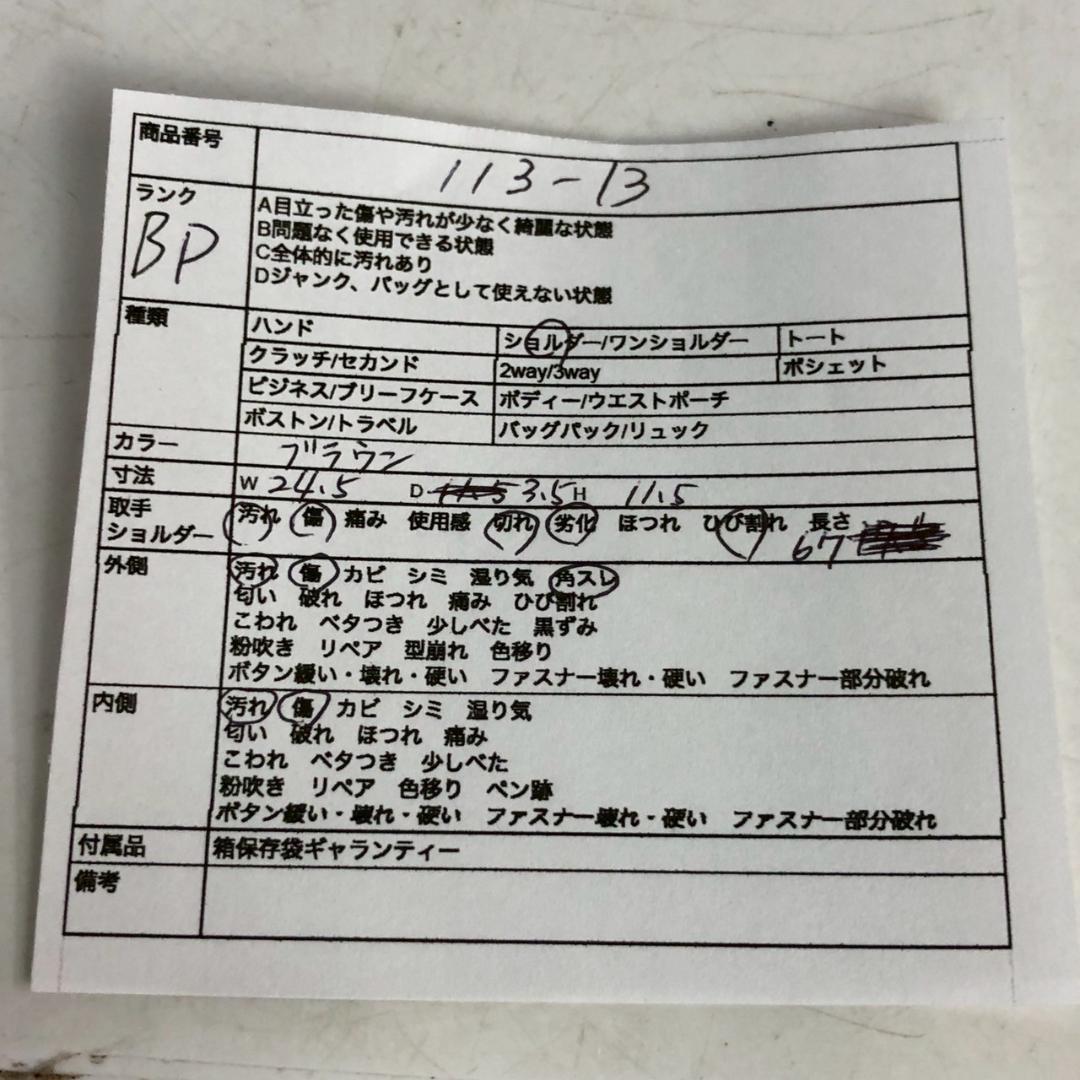 商品番号 113-13
ランク BP
A目立った傷や汚れが少なく綺麗な状態
B問題なく使用できる状態
C全体的に汚れあり
Dジャンク、バッグとして使えない状態
種類 ハンド ショルダー/ワンショルダー トート
クラッチ/セカンド 2way/3way ポシェット
ビジネス/ブリーフケース ボディー/ウエストポーチ
ボストン/トラベル バッグパック/リュック
カラー ブラウン
寸法 W 24.5 D 3.5 H 11.5
取手 汚れ 傷 痛み 使用感 切れ 劣化 ほつれ ひび割れ 長さ
ショルダー 67
外側 汚れ 傷 カビ シミ 湿り気 角スレ
匂い 破れ ほつれ 痛み ひび割れ
こわれ ベタつき 少しべた 黒ずみ
粉吹き リペア 型崩れ 色移り
ボタン緩い・壊れ・硬い ファスナー壊れ・硬い ファスナー部分破れ
内側 汚れ 傷 カビ シミ 湿り気
匂い 破れ ほつれ 痛み
こわれ ベタつき 少しべた
粉吹き リペア 色移り ペン跡
ボタン緩い・壊れ・硬い ファスナー壊れ・硬い ファスナー部分破れ
付属品 箱保存袋ギャランティー
備考